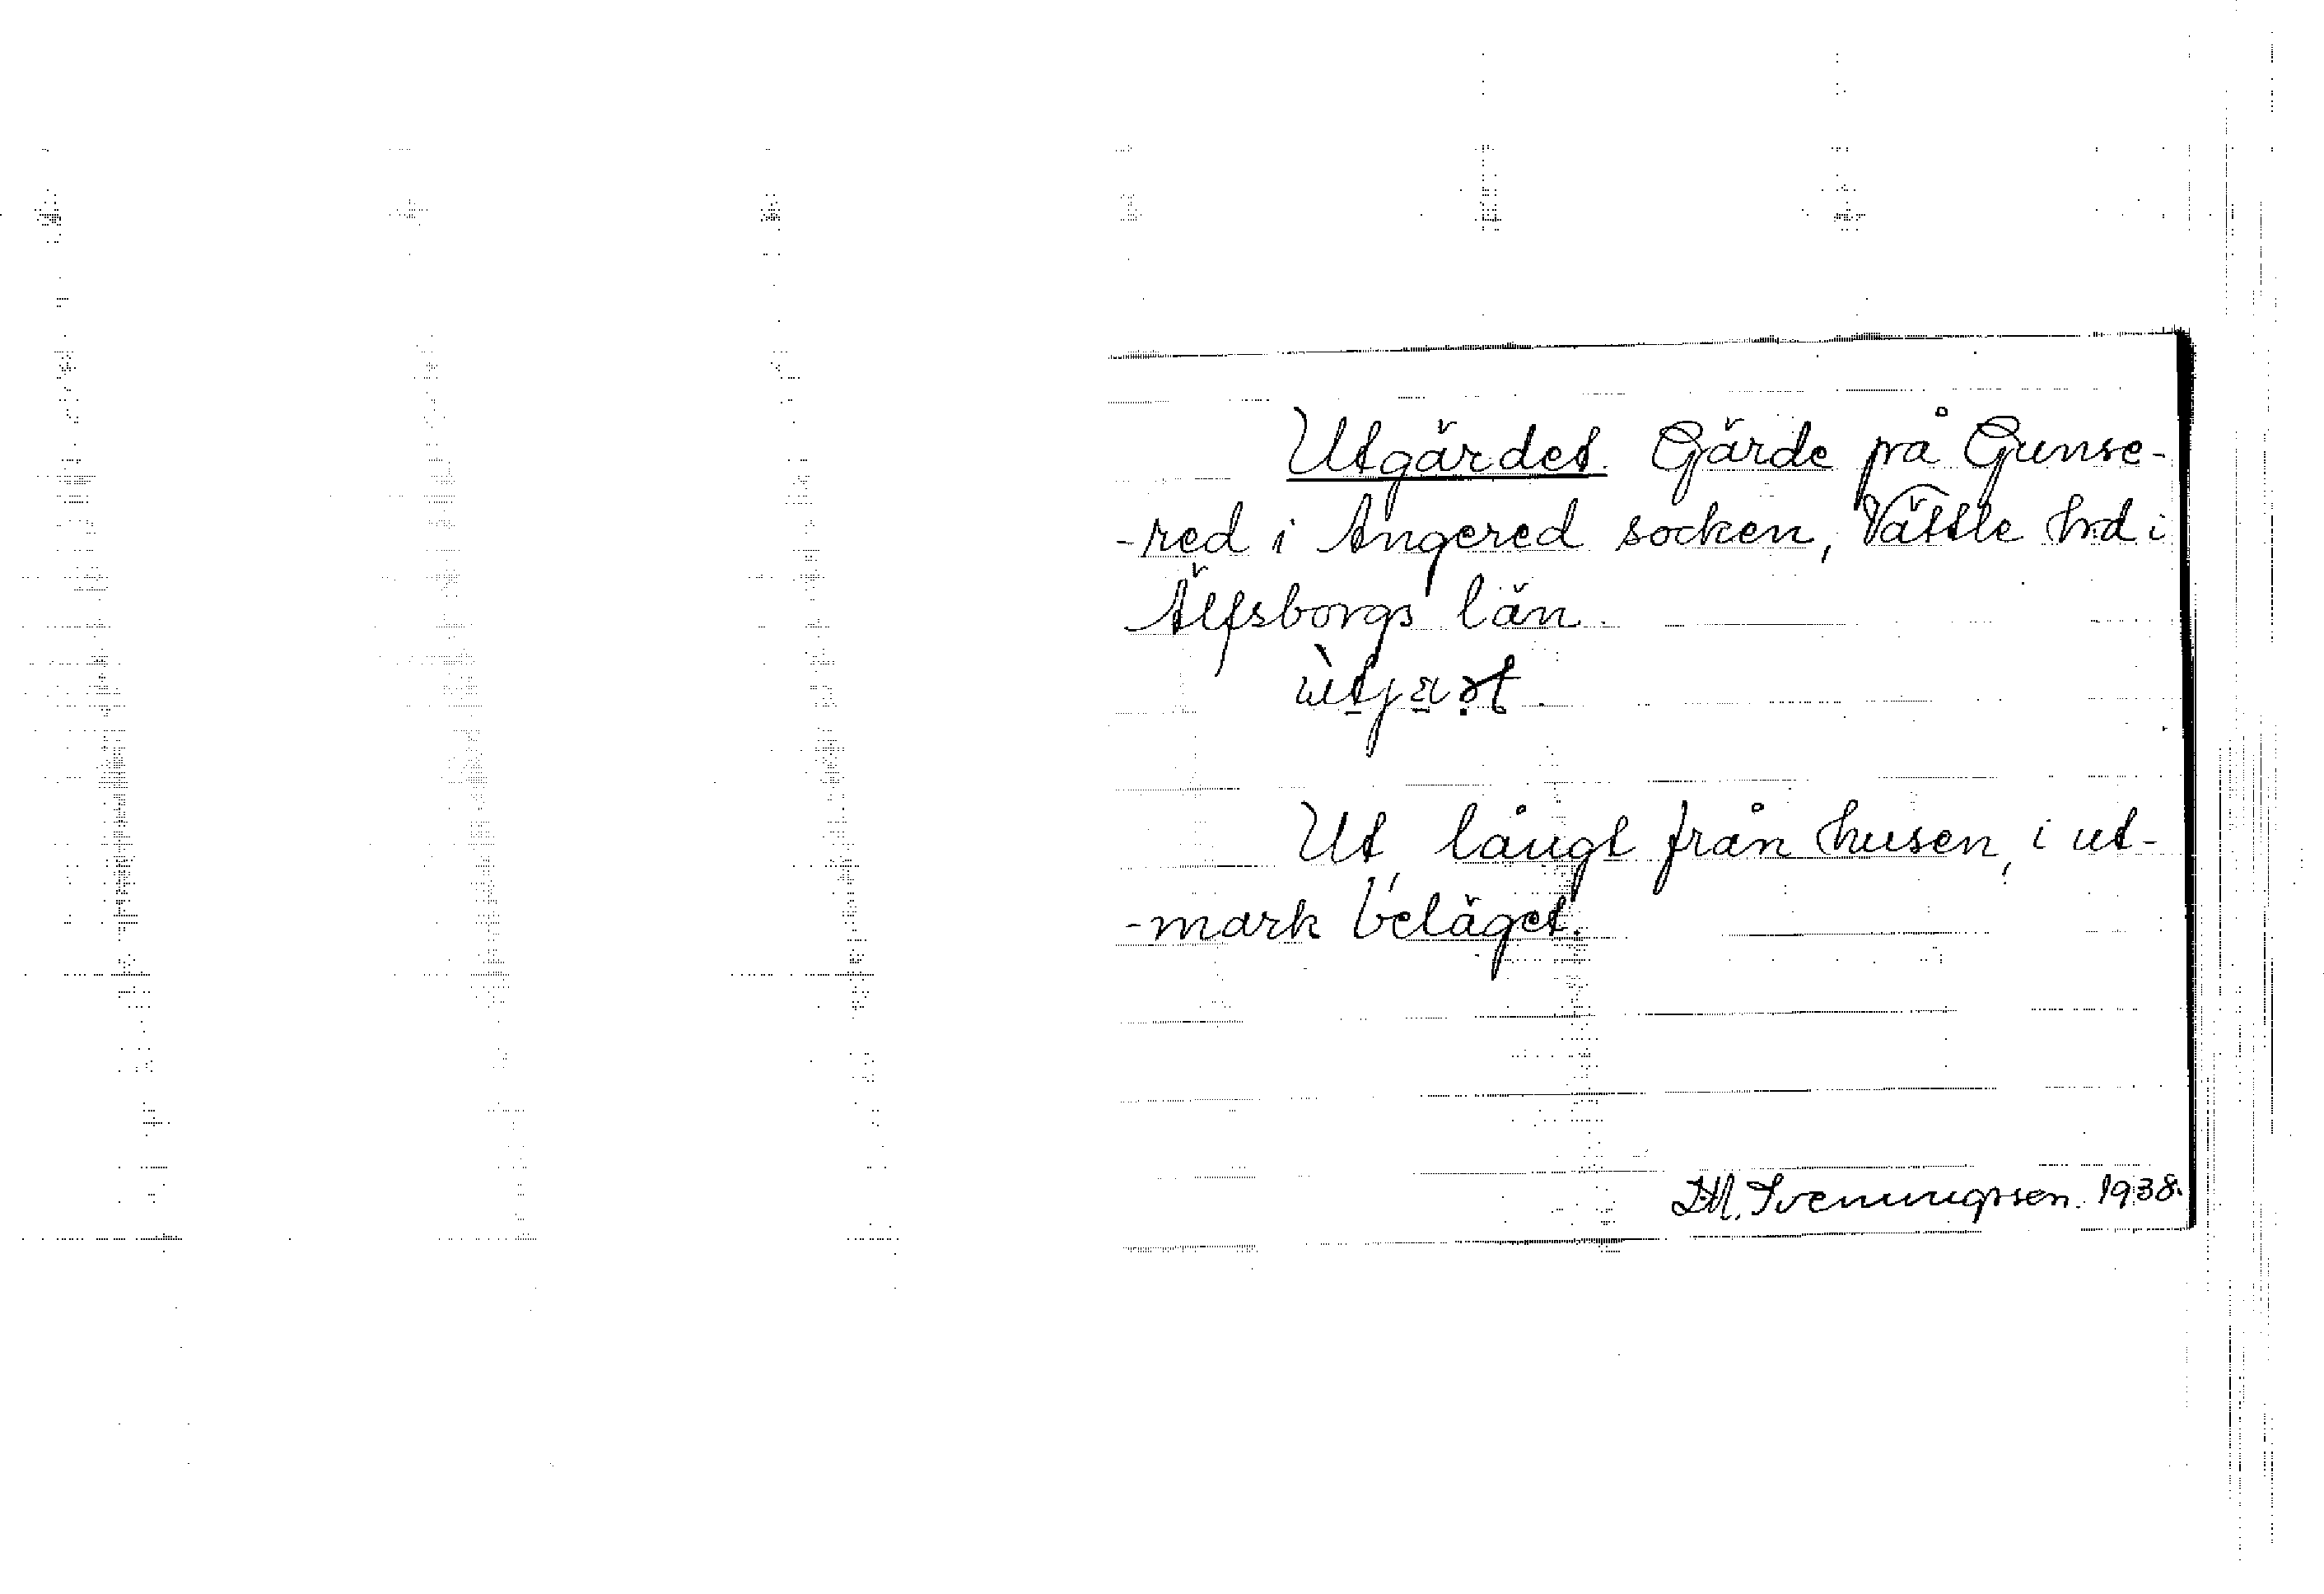 Utgärdet. Gärde på Gunse-
-red i Angered socken, Vättle hd i
Älfsborgs län.
Ut, långt från husen, i ut-
-mark beläget.
1938.